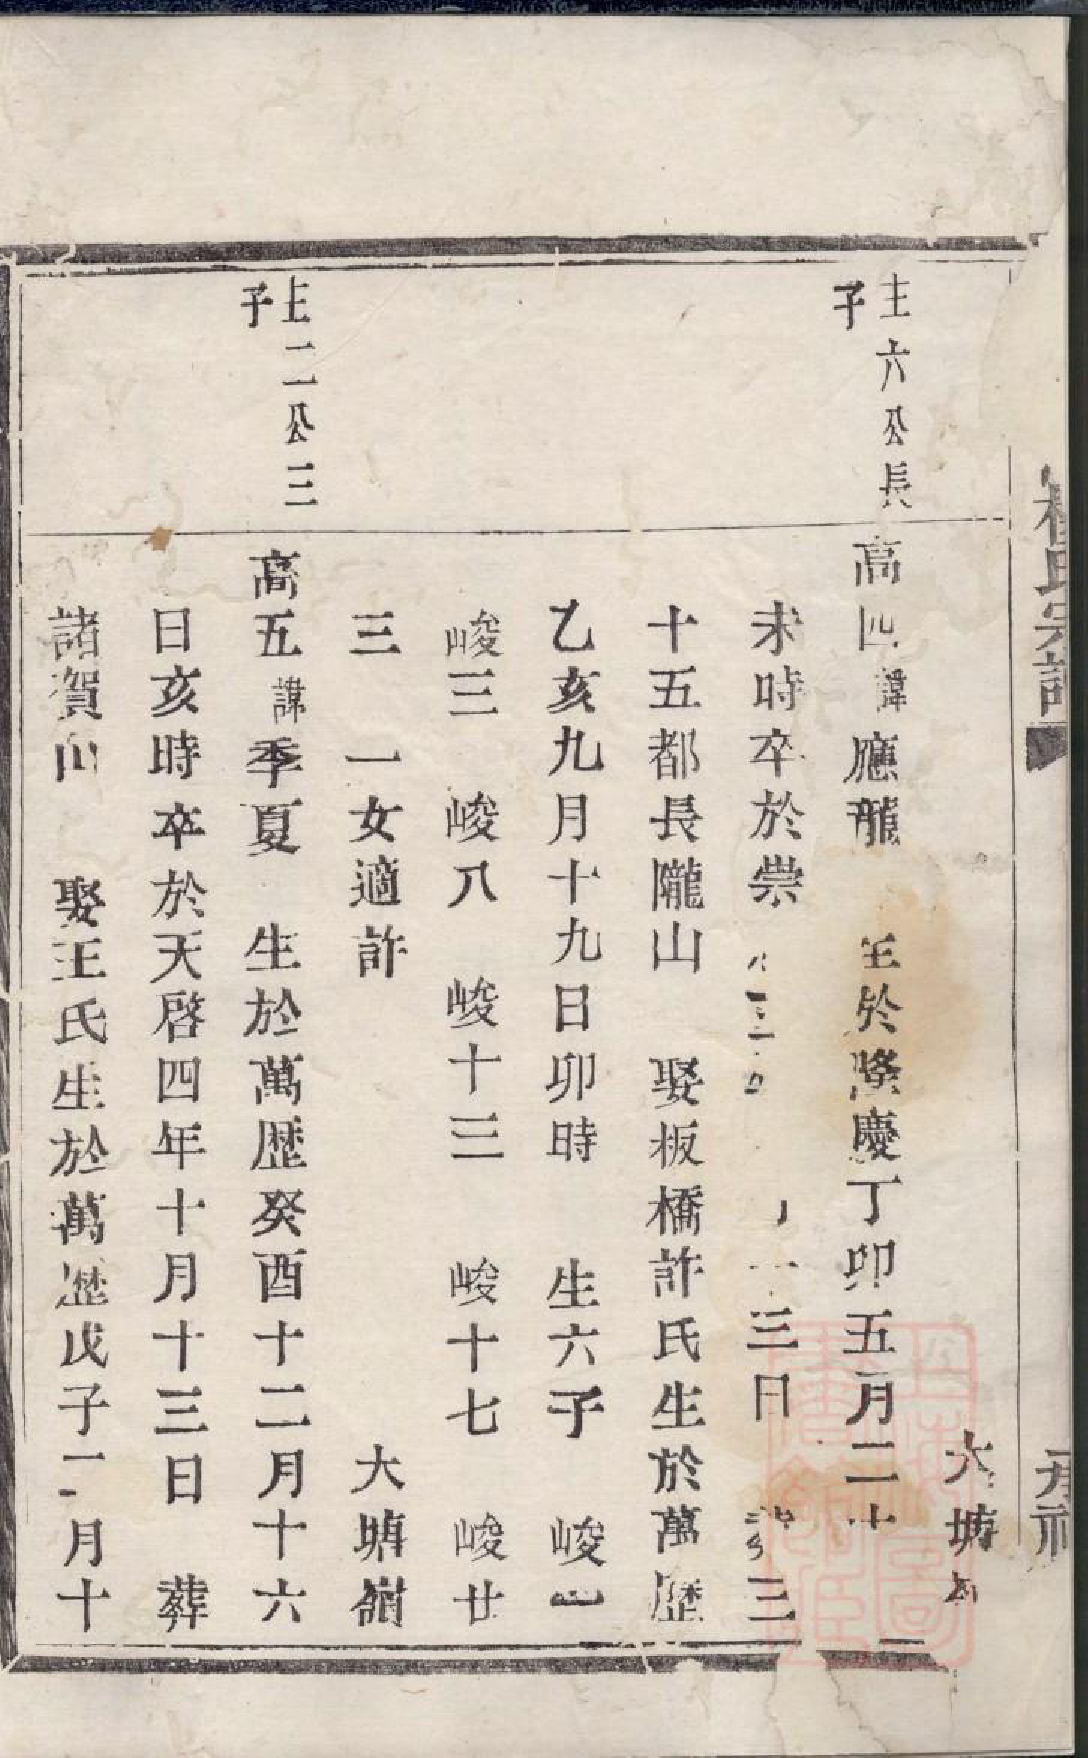 氏宗譜
大塘
主六公長
子
高四諱應龍 生於隆慶丁卯五月二十
未時卒於崇 三日 三
十五都長隴山 娶板橋許氏生於萬歷
乙亥九月十九日卯時 生六子 峻一
峻三 峻八 峻十三 峻十七 峻廿
三 一女適許 大塘嶺
主二公三
子
高五諱季夏 生於萬歷癸酉十二月十六
日亥時卒於天啓四年十月十三日 葬
諸賀山 娶王氏生於萬歷戊子二月十